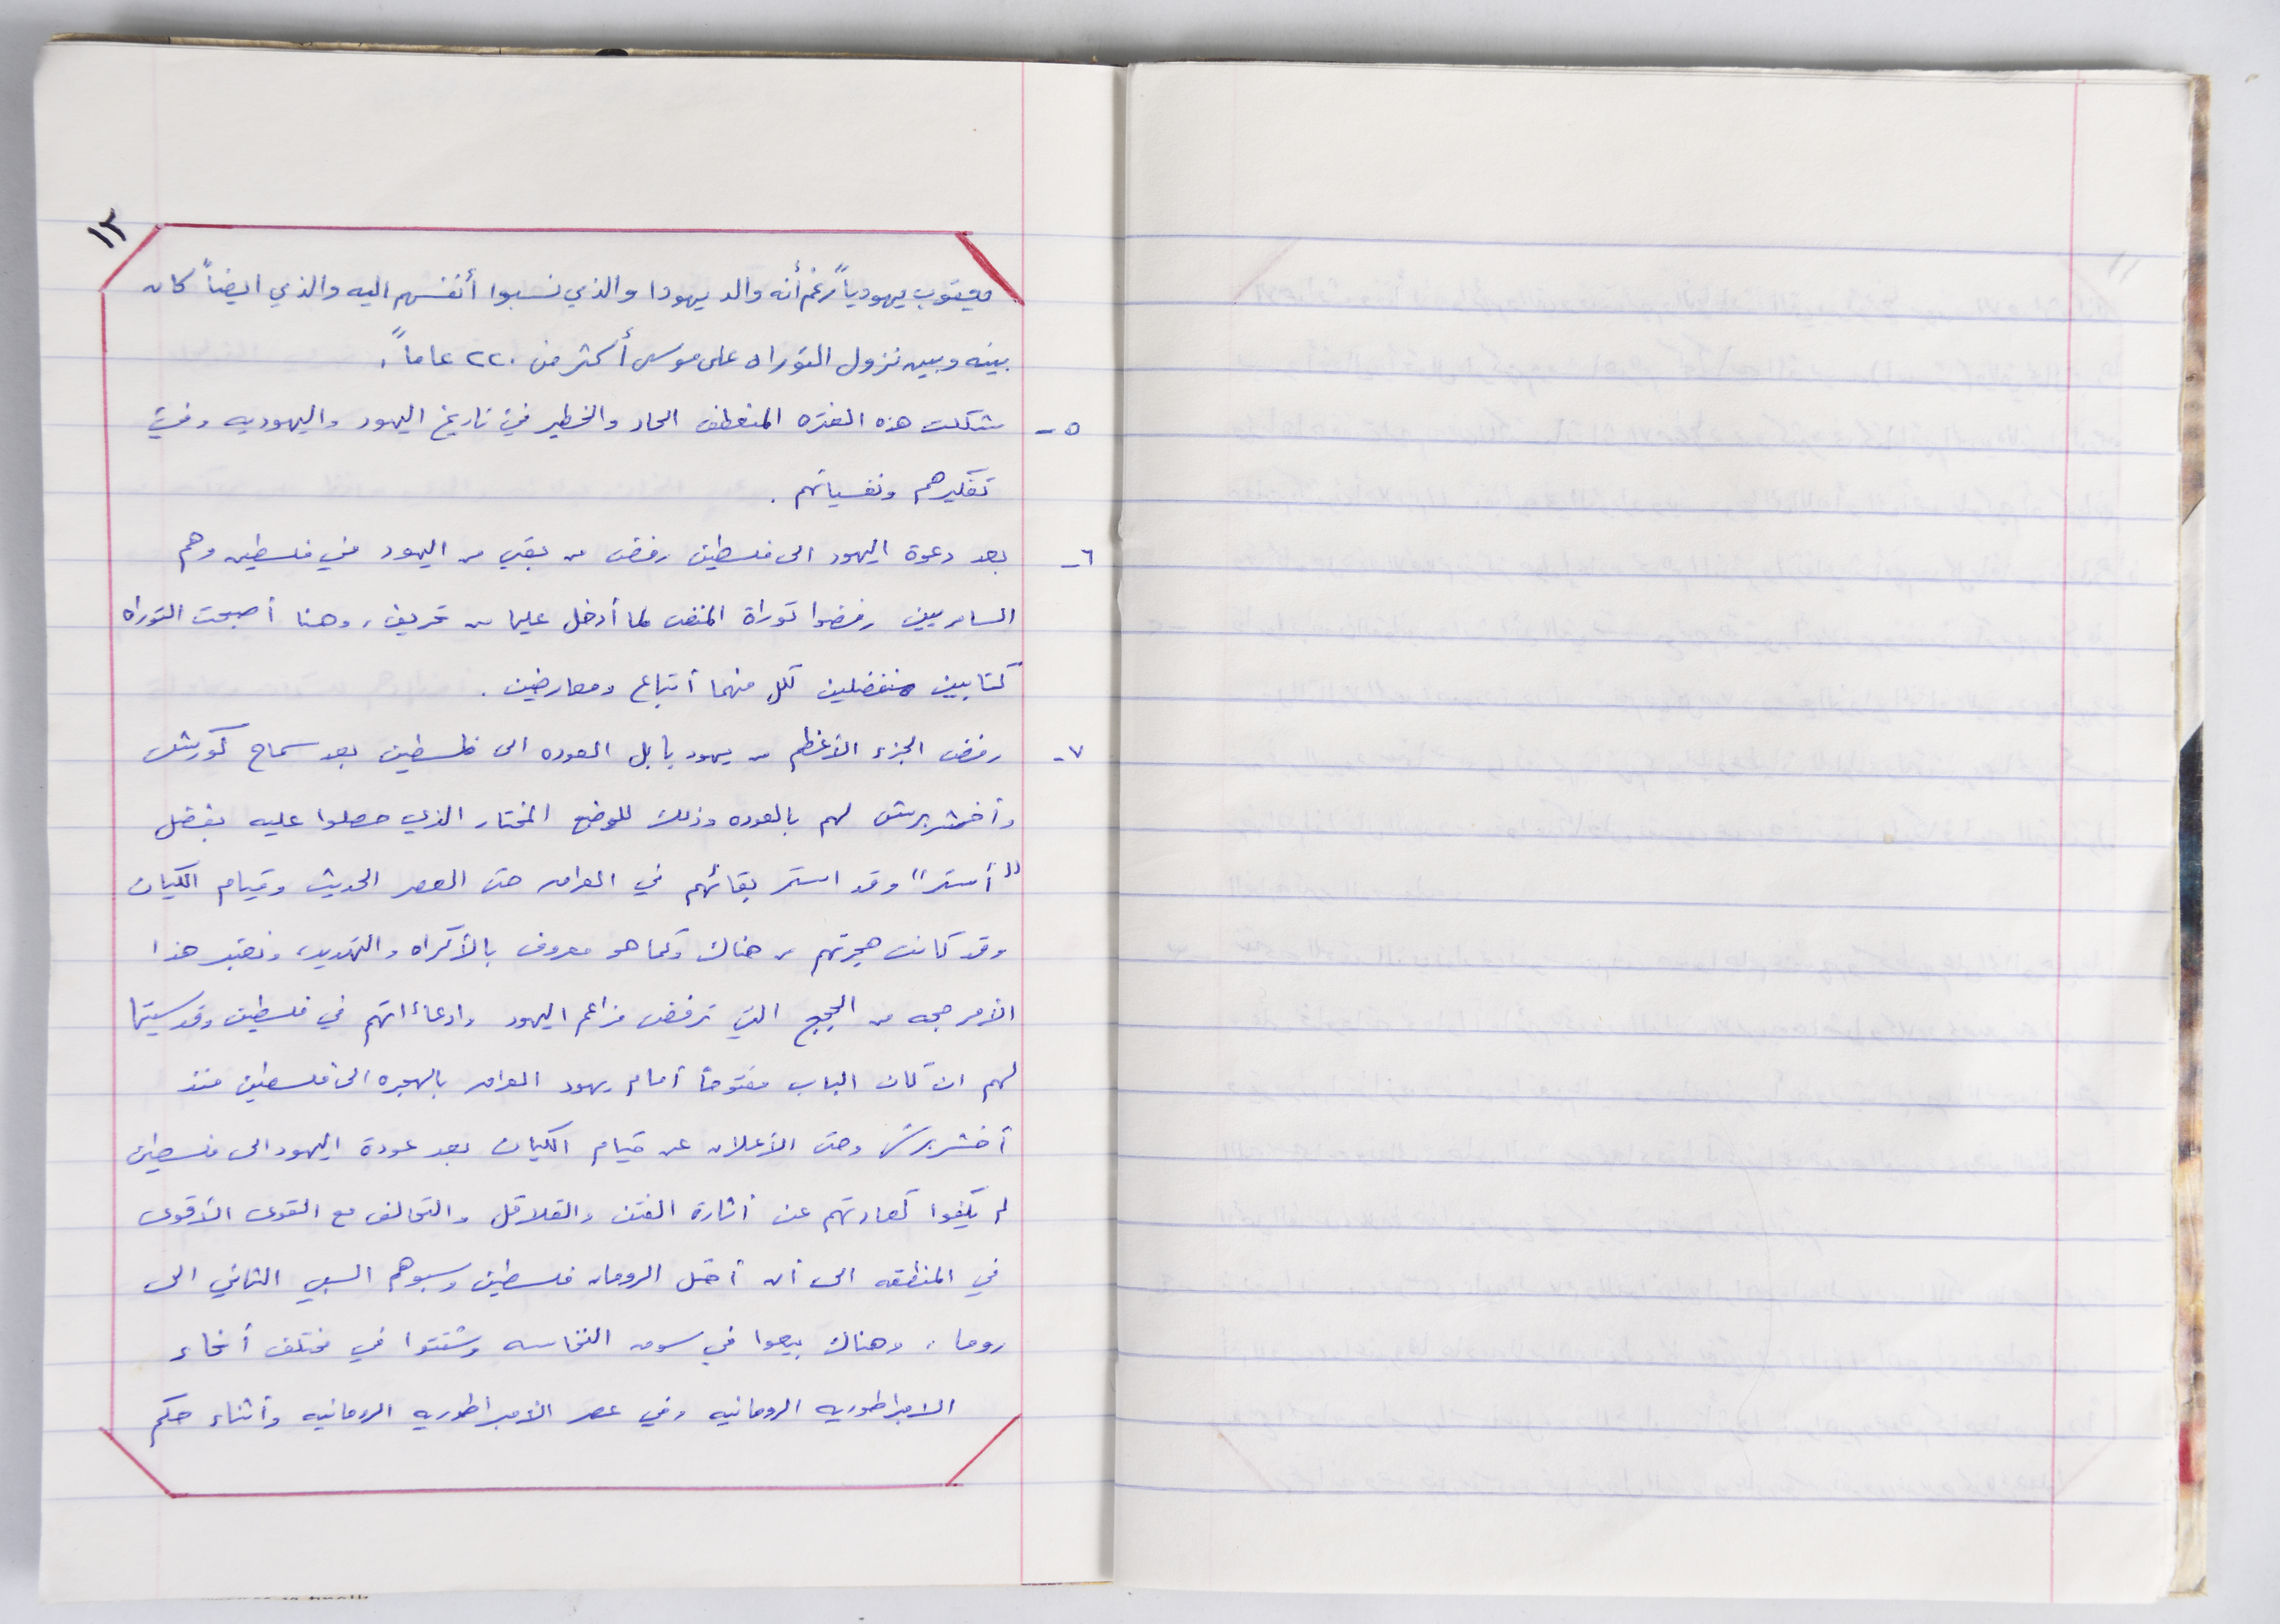 ١٢
ويعقوب يهودياً رغم أنه والد يهودا والذي نسبوا أنفسهم اليه والذي ايضاً كان
بينه وبين نزول التوراه على موسى أكثر من ٢٢٠ عاماً.
٥- شكلت هذه الفتره المنعطف الحاد والخطير في تاريخ اليهود واليهوديه وفي
تفكيرهم ونفسياتهم .
٦- بعد دعوة اليهود الى فلسطين رفض من بقي من اليهود في فلسطين وهم
السامريين رفضوا توراة المنفى لما أدخل عليها من تحريف، وهنا أصبحت التوراه
كتابين منفصلين لكل منهما أتباع ومعارضين .
٧- رفض الجزء الأعظم من يهود بابل العوده الى فلسطين بعد سماح كورش
وأخشريرش لهم بالعوده وذلك للوضع المختار الذي حصلوا عليه بفضل
"أستر" وقد استمر بقائهم في العراق حتى العصر الحديث وقيام الكيان
وقد كانت هجرتهم من هناك وكما هو معروف بالأكراه والتهديد، ونعتبر هذا
الأمر حجه من الحجج التي ترفض مزاعم اليهود وادعاءاتهم في فلسطين وقدسيتها
لهم ان كان الباب مفتوحاً أمام يهود العراق بالهجره الى فلسطين منذ
أخشريرش وحتى الأعلان عن قيام الكيان بعد عودة اليهود الى فلسطين
لم يكفوا كعادتهم عن أثارة الفتن والقلاقل والتحالف مع القوى الأقوى
في المنطقه الى أن أحتل الرومان فلسطين وسبوهم السبي الثاني الى
روما، وهناك بيعوا في سوق النخاسه وشتتوا في مختلف أنحاء
الامبراطوريه الرومانيه وفي عصر الأمبراطوريه الرومانيه وأثناء حكم